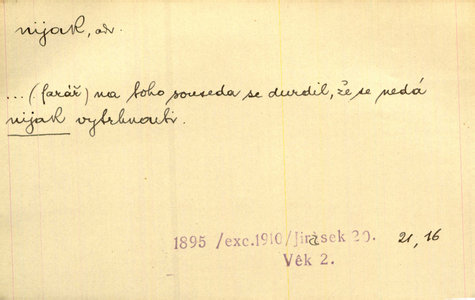 nijak, adv.
... (farář) na toho souseda se durdil, že se nedá
nijak vytrhnouti.
1895 /exc.1910/Jirásek 20. 21, 16
Věk 2.